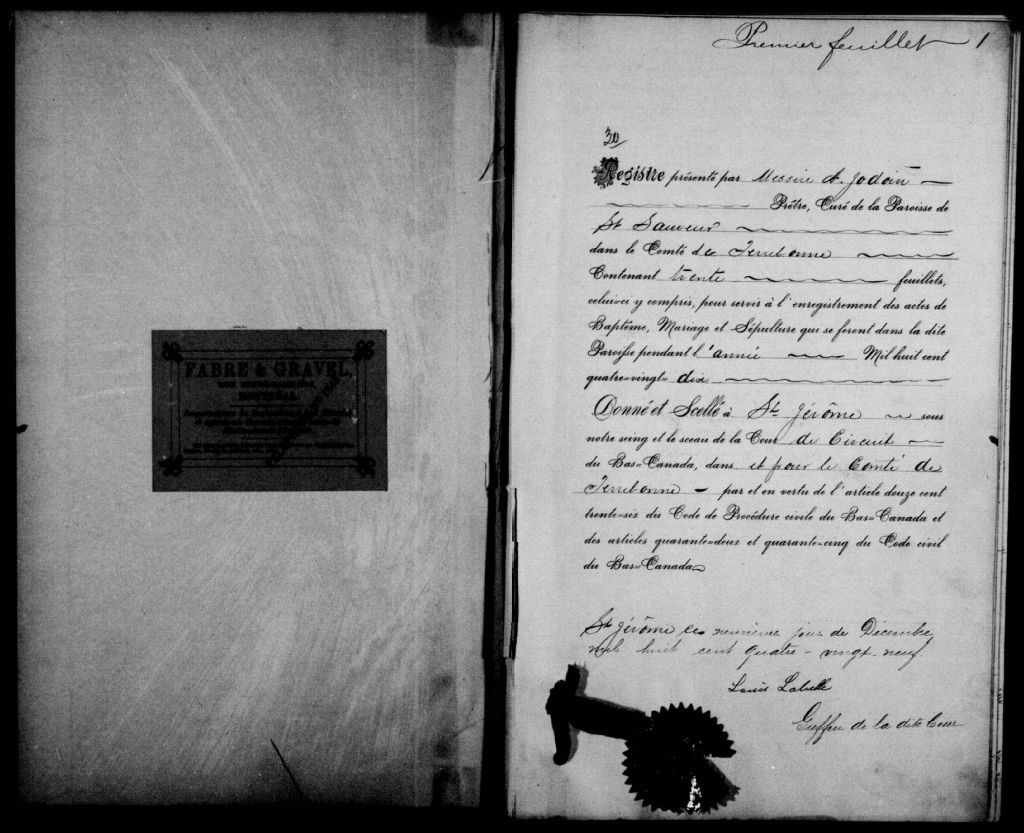 FABRE & GRAVEL,
MONTRÉAL.
Premier feuillet 1
30
Registre présenté par Messire A. Jodoin
Prêtre, Curé de la Paroisse de
St Sauveur
dans le Comté de Terrebonne
Contenant trente feuillets,
celui-ci y compris, pour servir à l'enregistrement des actes de
Baptême, Mariage et Sépulture qui se feront dans la dite
Paroisse pendant l'année Mil huit cent
quatre=vingt= dix
Donné et Scellé à St. Jérôme sous
notre seing et le sceau de la Cour de Circuit
du Bas=Canada, dans et pour le Comté de
Terrebonne - par et en vertu de l'article douze cent
trente=six du Code de Procédure civile du Bas=Canada et
des articles quarante=deux et quarante-cinq du Code civil
du Bas=Canada.
St Jérôme ce neuvième jour de Décembre
mil huit cent quatre-vingt-neuf.
Louis Labelle
Greffier de la dite Cour